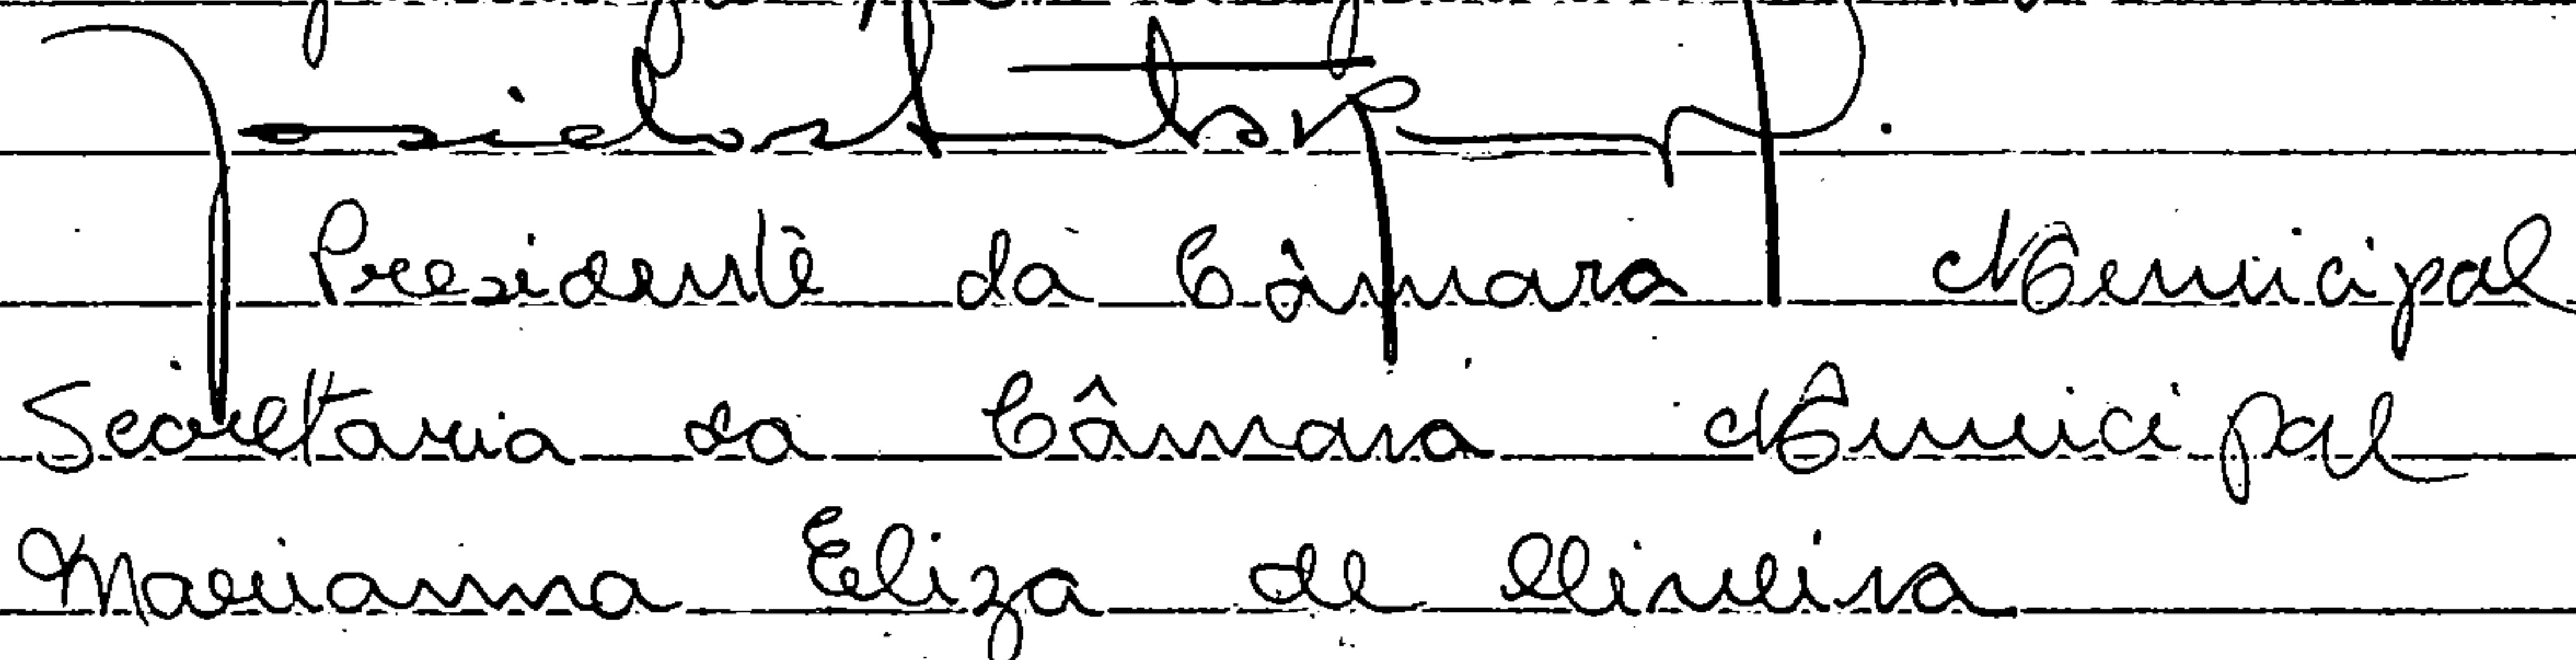 Presidente da Câmara Municipal
Secretaria da Câmara Municipal
Marianna Eliza de Oliveira